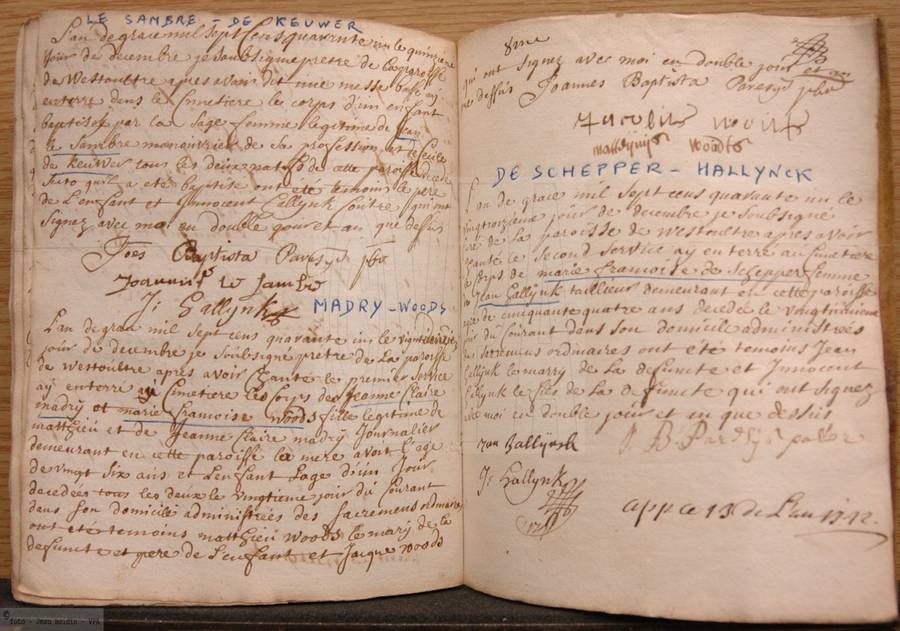 LE SAMBRE - DE KEUWER
L'an de grace mil sept cens quarante un le quinzieme
jour de decembre je soubsigné pretre de la paroisse
de Westoultre apres avoir dit une messe basse ay
enterré dans le cimetiere le corps d'un enfant
baptisé par la sage femme legitime de Jean
le Sambre manouvrier de sa profession et de
de Keuwer tous les deux natifs de cette paroisse
qu'il a eté baptisé ont eté temoins le père
de L'enfant et Innocent Callynk qui ont
signez avec moi en double jour et an que dessus
Joes Baptista Paresys pbr
le Sambre
J: Gallynk
MADRY - WOODS
L'an de grace mil sept cens quarante un le vingt
jour de decembre je soubsigné pretre de La paroisse
de Westoultre après avoir Chanté le premier service
ay enterré au Cimetiere les corps de Jeanne Claire
madrÿ et marie francoise woods fille legitime de
matthieu et de Jeanne Claire madrÿ Journalier
demeurant en cette paroisse la mere avoit L'age
de vingt six ans et L'enfant L'age d'un Jour
decedées tous les deux le vingtieme jour du Courant
dans son domicile administrées des sacremens ordinaires
ont eté temoins matthieu woods le mary de la
defuncte et pere de L'enfant et Jacque woods
8me
qui ont signez avec moi en double jour et an
que dessus Joannes Baptista Paresys pbr
woodts
DE SCHEPPER - HALLYNCK
L'an de grace mil sept cens quarante un le
vingtroisieme jour de decembre je soubsigné
de La paroisse de westoultre apres avoir
chanté le second service ay enterré au Cimetiere
le Corps de marie francoise de Schepper femme
de Jean Gallynk tailleur demeurant en cette paroisse
agée de cinquante quatre ans decedée le vingtunieme
jour du Courant dans son domicile administrées
des sacremens ordinaires ont eté temoins Jean
Callynk le marry de La defuncte et Innocent
Callynk le fils de La defuncte qui ont signez
avec moi en double jour et an que dessus
Jan Gallynck
J: B: Paresys pastor
J: Gallynk
app ce 13 de L'an 1742.
© foto - Jean Bridin - VPA